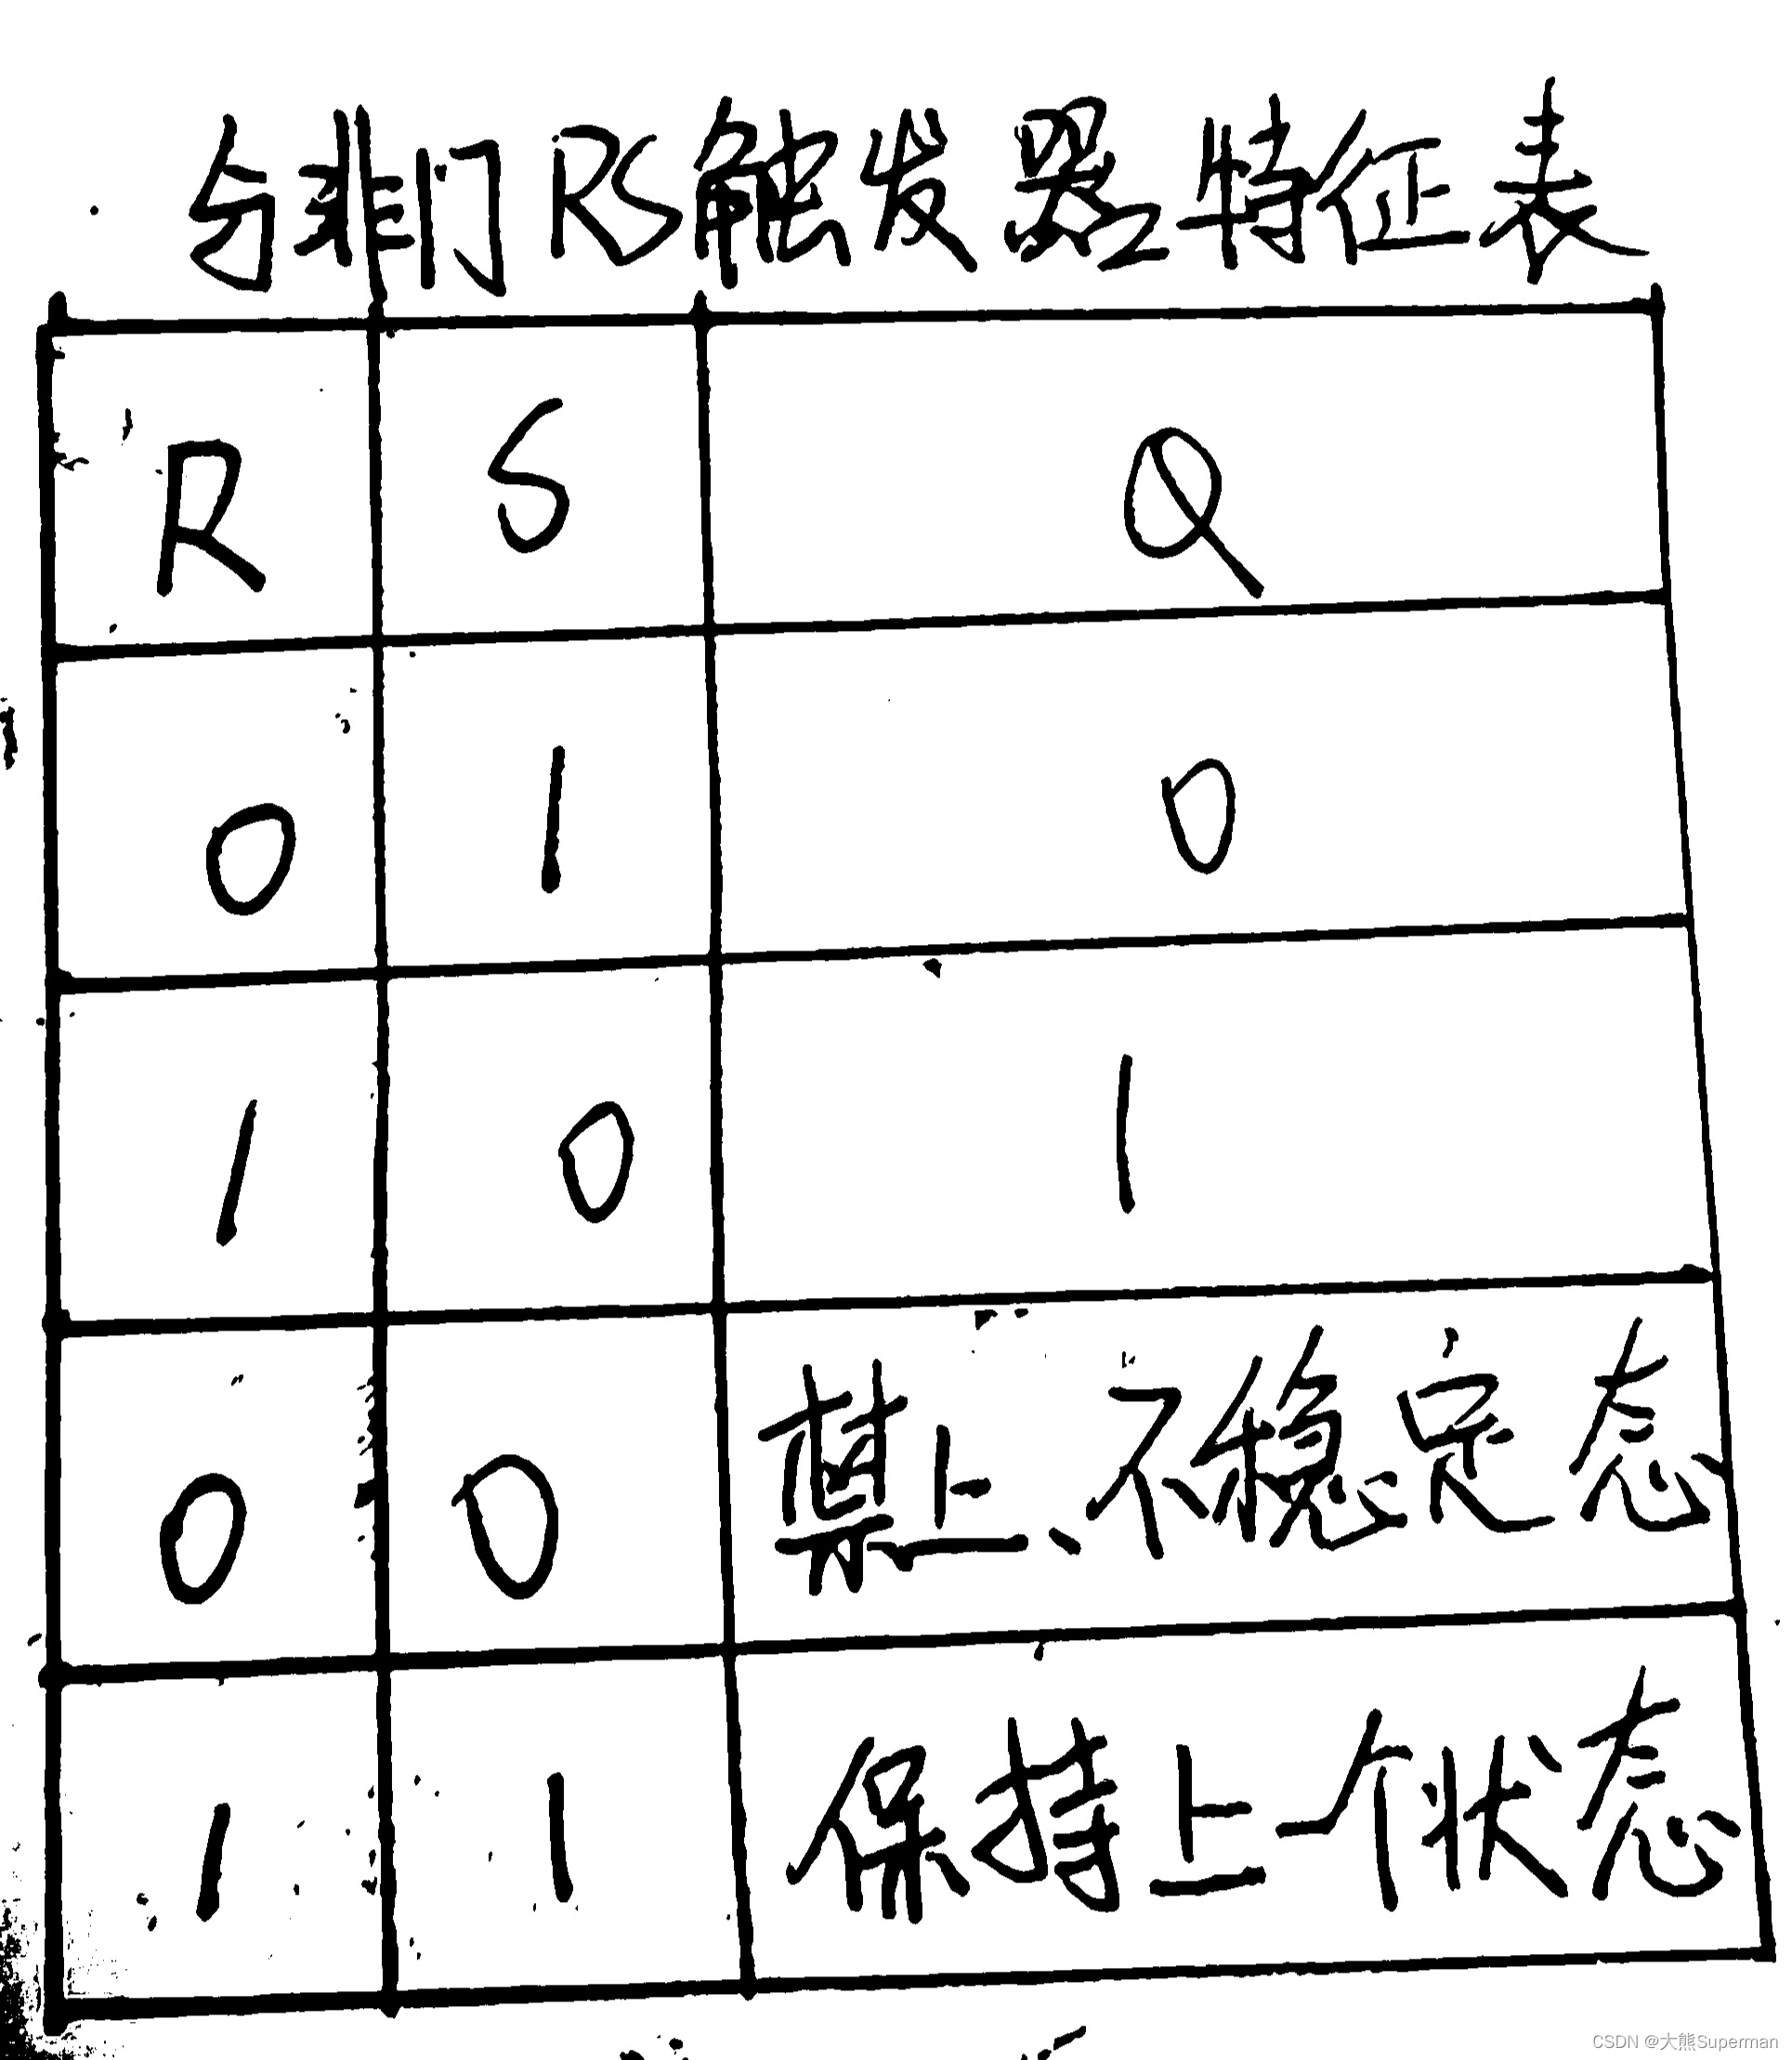 与非门RS触发器特征表
R S Q
0 1 0
1 0 1
0 0 禁止、不稳定态
1 1 保持上一个状态
CSDN @大熊Superman